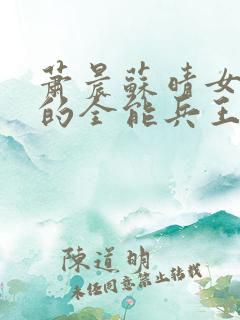 蕭晨蘇晴女
的全能兵王
陳道明
未经同意禁止转载